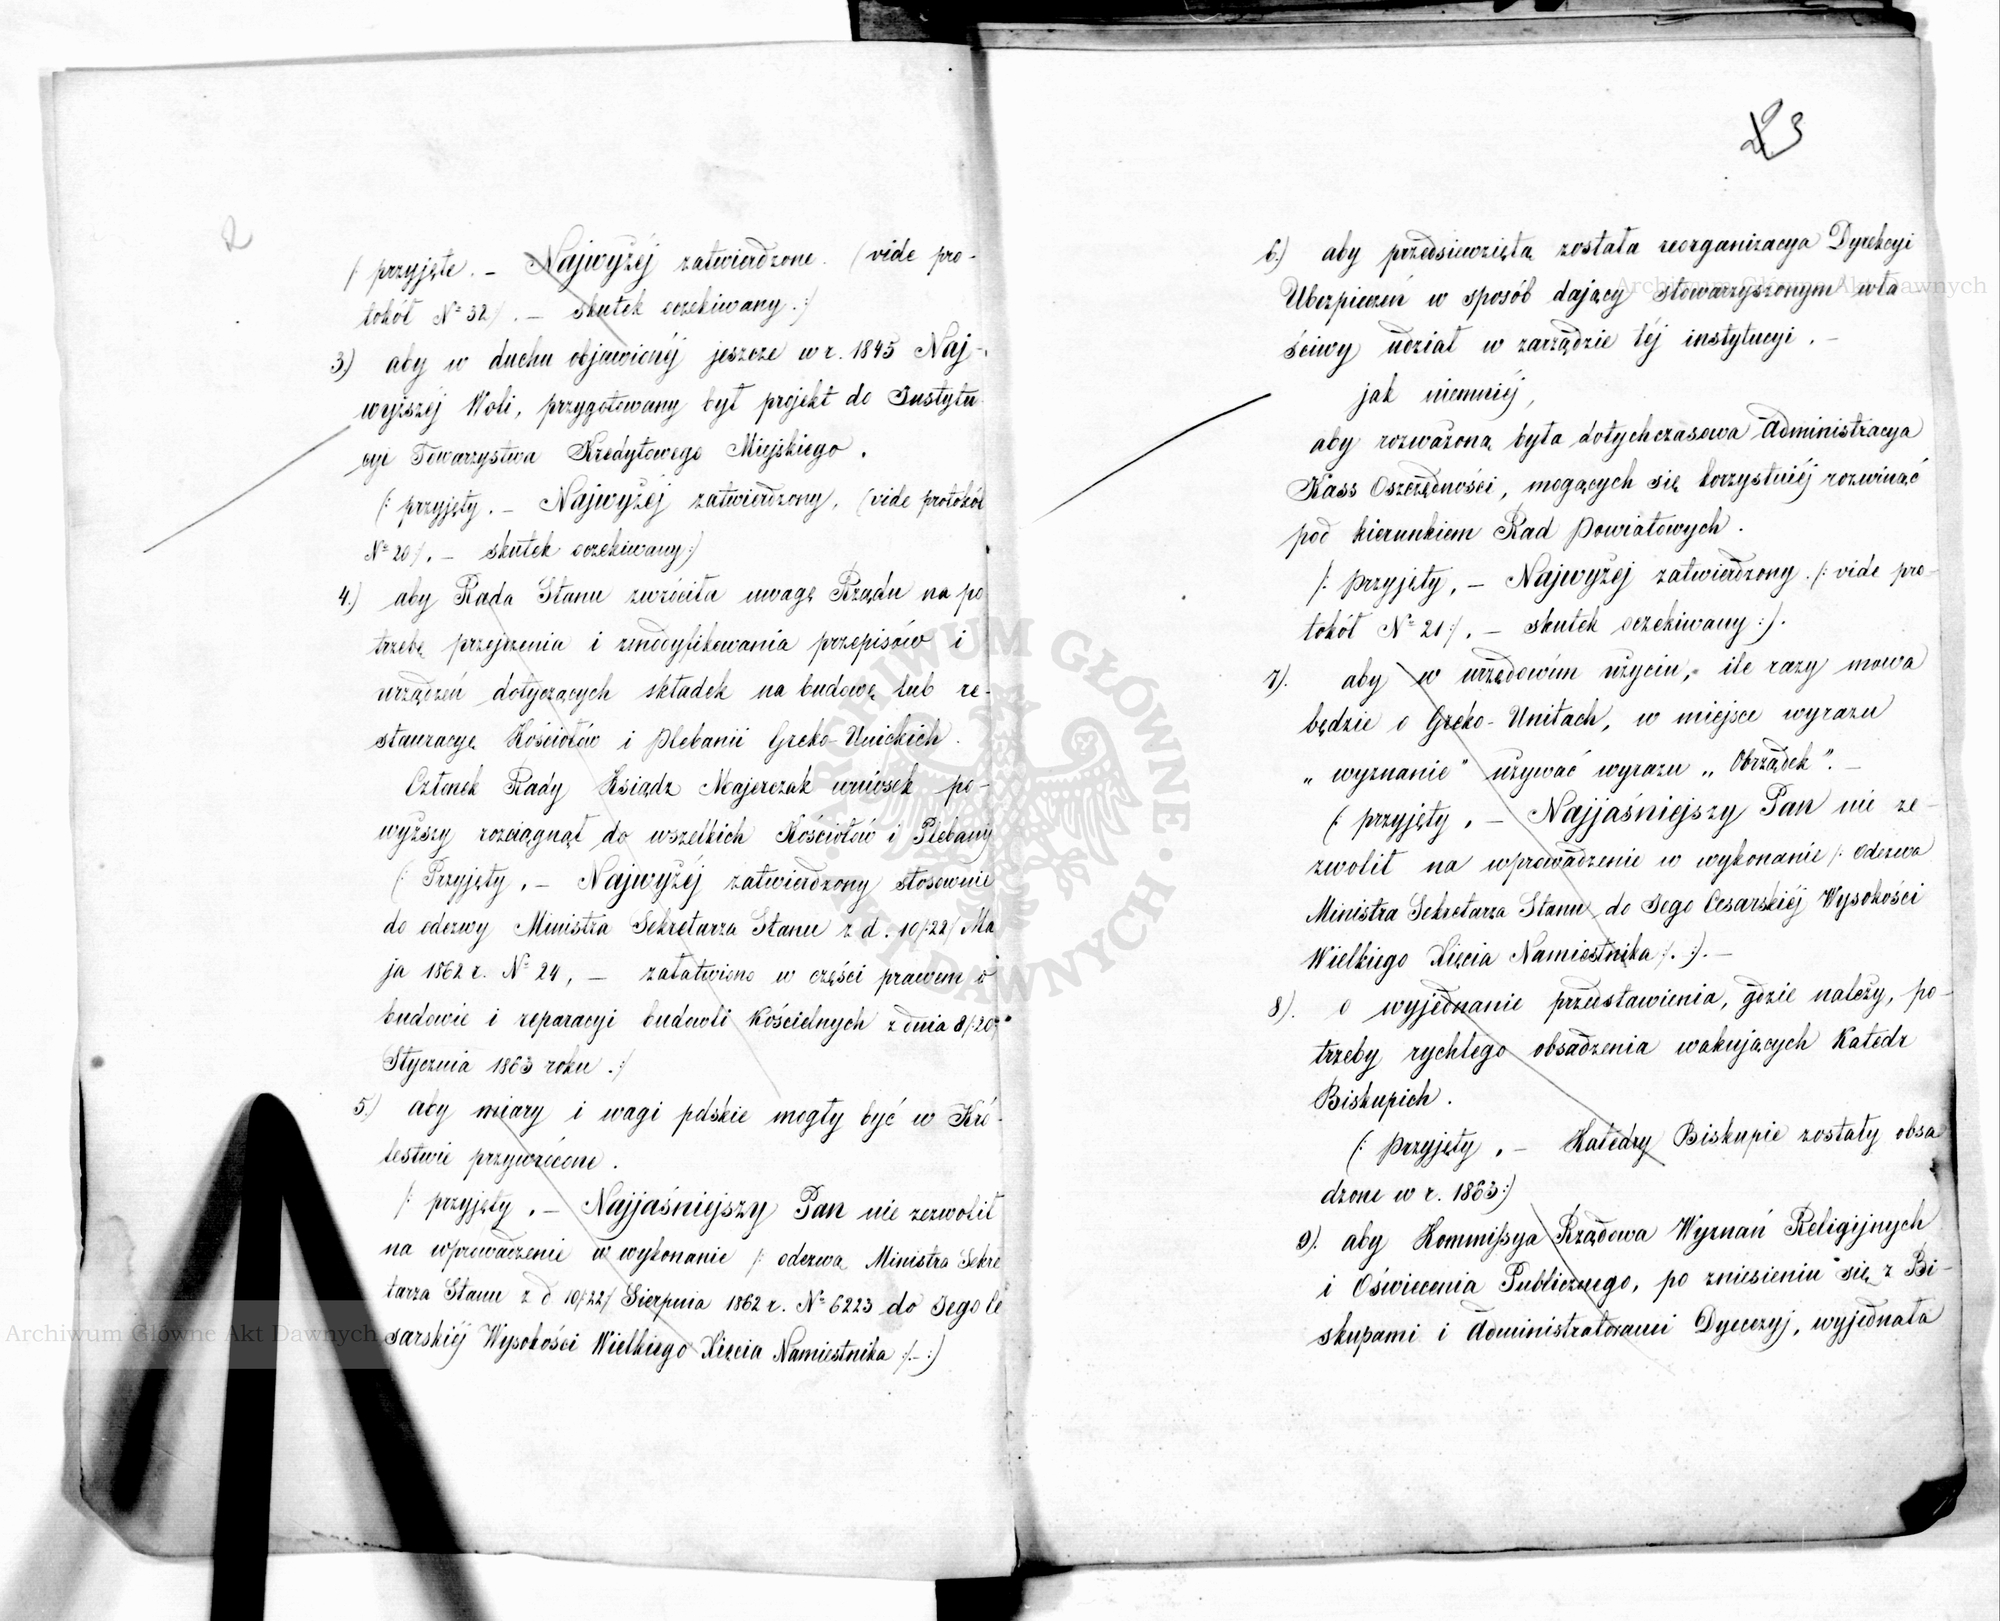 2
/: przyjęte. – Najwyżej zatwierdzone. (vide pro-
tokół № 32/. – skutek oczekiwany :/
3) aby w duchu objawionéj jeszcze w r. 1845 Naj-
wyższej Woli, przygotowany był projekt do Instytu-
cyi Towarzystwa Kredytowego Miejskiego.
(: przyjęty. – Najwyżej zatwierdzony. (vide protokół
№ 20/. – skutek oczekiwany :)
4.) aby Rada Stanu zwróciła uwagę Rządu na po
trzebę przejrzenia i zmodyfikowania przepisów i
urządzeń dotyczących składek na budowę lub re-
stauracyę Kościołów i Plebanii Greko-Unickich.
Członek Rady Ksiądz Majerczak wniosek po-
wyższy rozciągnął do wszelkich Kościołów i Plebanij
(: Przyjęty. – Najwyżéj zatwierdzony stosownie
do odezwy Ministra Sekretarza Stanu z d. 10/:22/ Ma
ja 1862 r. № 24, – załatwiono w części prawem o
budowie i reparacyi budowli Kościelnych z dnia 8/:20/
Stycznia 1863 roku. :/
5.) aby miary i wagi polskie mogły być w Kró-
lestwie przywrócone.
/: przyjęty. – Najjaśniejszy Pan nie zezwolił
na wprowadzenie w wykonanie /: odezwa Ministra Sekre
tarza Stanu z d 10/:22/ Sierpnia 1862 r. № 6223 do Jego Ce
sarskiéj Wysokości Wielkiego Xięcia Namiestnika :/. – :)
23
6.) aby przedsięwziętą została reorganizacya Dyrekcyi
Ubezpieczeń w sposób dający stowarzyszonym wła
ściwy udział w zarządzie téj instytucyi. –
jak niemniéj,
aby rozważoną była dotychczasowa Administracya
Kass Oszczędności, mogących się korzystniéj rozwinąć
pod kierunkiem Rad Powiatowych.
/: Przyjęty, – Najwyżej zatwierdzony. /: vide pro-
tokół № 21 :/. – skutek oczekiwany :).
7). aby w urzędowém użyciu, ile razy mowa
będzie o Greko-Unitach, w miejsce wyrazu
„wyznanie” używać wyrazu „Obrządek”. –
(: przyjęty. – Najjaśniejszy Pan nie ze-
zwolił na wprowadzenie w wykonanie /: Odezwa
Ministra Sekretarza Stanu do Jego Cesarskiéj Wysokości
Wielkiego Xięcia Namiestnika :/. :). –
8). o wyjednanie przedstawienia, gdzie należy, po-
trzeby rychłego obsadzenia wakujących Katedr
Biskupich.
(: Przyjęty. – Katedry Biskupie zostały obsa
dzone w r. 1863 :)
9). aby Kommissya Rządowa Wyznań Religijnych
i Oświecenia Publicznego, po zniesieniu się z Bi-
skupami i Administratorami Dyecezyj, wyjednała
Archiwum Główne Akt Dawnych
Archiwum Główne Akt Dawnych
ARCHIWUM GŁÓWNE AKT DAWNYCH